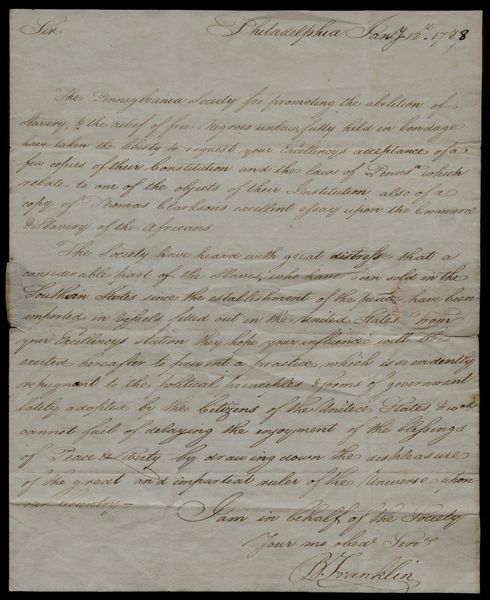 Sir
Philadelphia Jany 12th. 1788
The Pennsylvania Society for promoting the abolition of
Slavery, & the relief of free Negroes unlawfully held in bondage
have taken the liberty to request your Excellencys acceptance of a
few copies of their Constitution and the laws of Pennsa which
relate to one of the objects of their Institution also of a
copy of Thomas Clarksons excellent essay upon the Commerce
& Slavery of the Africans.
The Society have heard with great distress that a
considerable part of the Slaves, who have been sold in the
Southern States since the establishment of the peace have been
imported in Vessels fitted out in the United States. From
your Excellencys station they hope your influence will be
exerted hereafter to prevent a practice which is so evidently
repugnant to the political principles & forms of government
lately adopted by the Citizens of the United States &
cannot fail of delaying the enjoyment of the blessings
of Peace & liberty by drawing down the displeasure
of the great and impartial ruler of the Universe upon
our Country—
I am in behalf of the Society
Your mo obedt Servt
B. Franklin